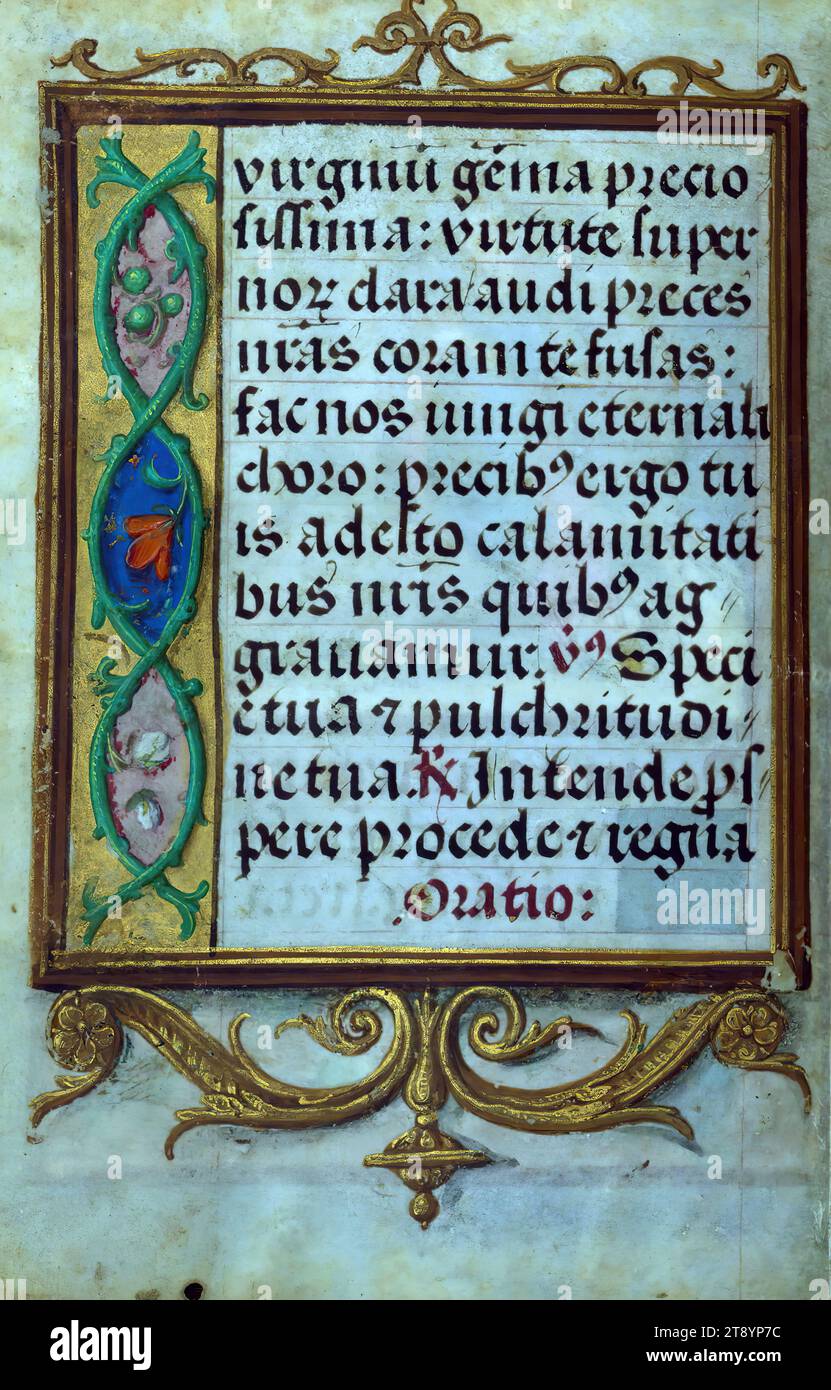 virginū gēma precio
sissima: virtute super
noꝝ clara audi preces
nr̄as coram te fusas:
fac nos iungi eternali
choro: precibꝰ ergo tu
is adesto calamitati
bus nr̄is quibꝰ ag〃
grauamur. v̄ꝰ Speci
e tua ⁊ pulchritudi〃
ne tua. R̄ Intende ꝓs
pere procede ⁊ regna
Oratio:
alamy
Image ID: 2T8YP7C
www.alamy.com